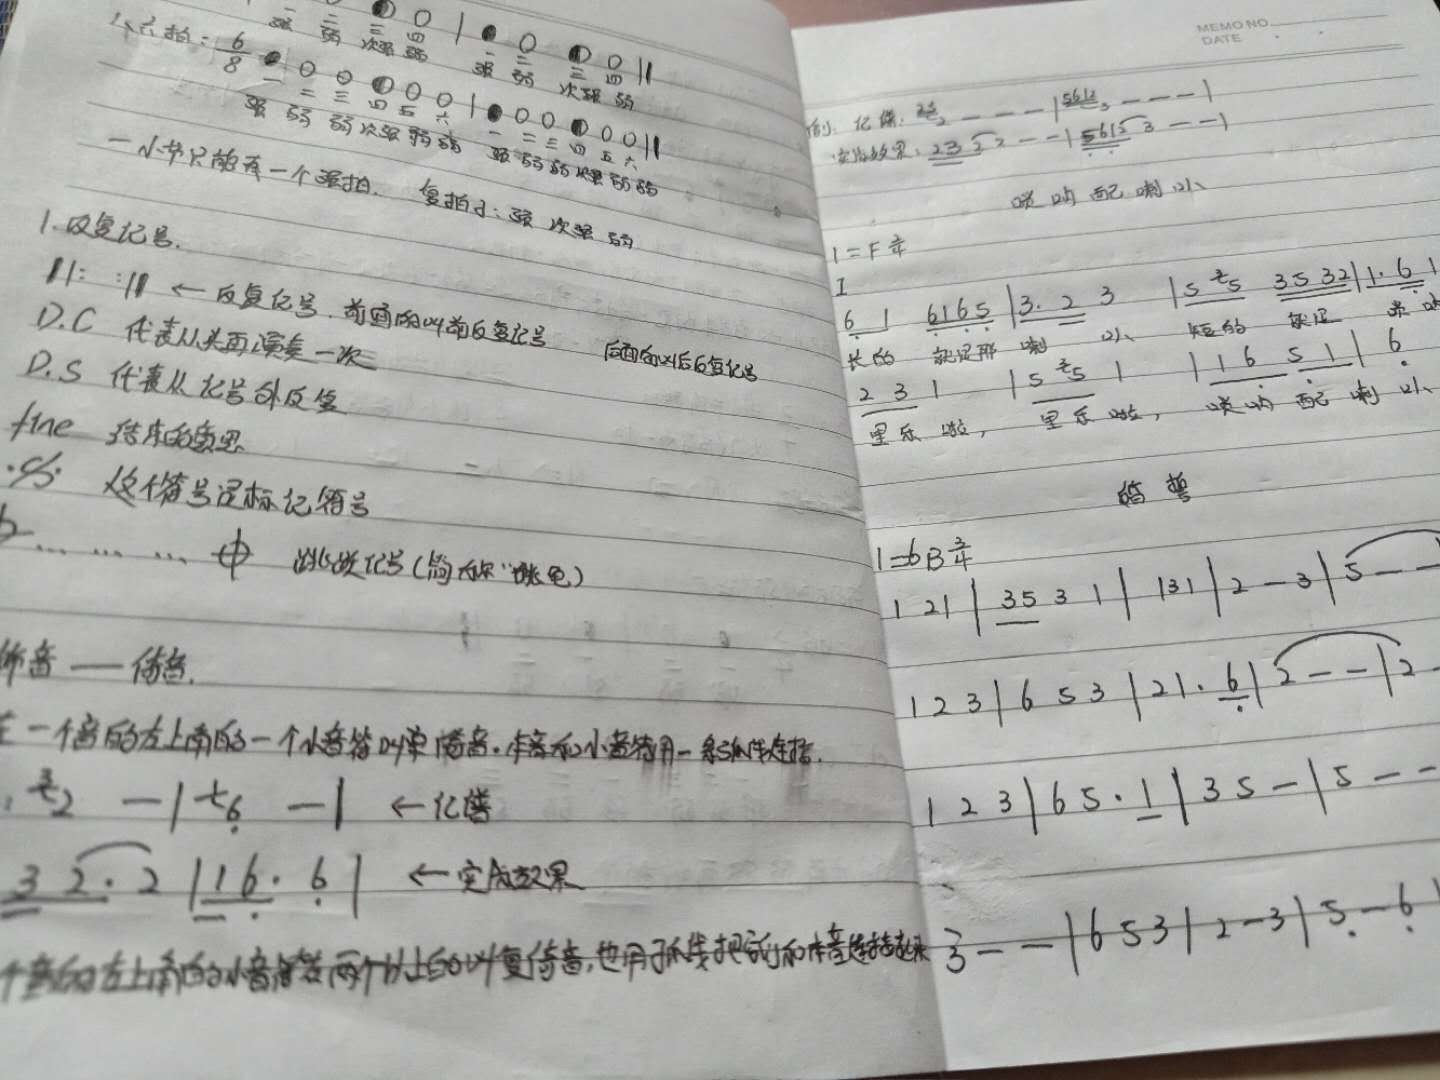 一 二 三 四 一 二 三 四
强 弱 次强 弱 强 弱 次强 弱
六拍: 6/8 ● ○ ○ ◐ ○ ○ | ● ○ ○ ◐ ○ ○ ||
一 二 三 四 五 六 一 二 三 四 五 六
强 弱 弱 次强 弱 弱 强 弱 弱 次强 弱 弱
一小节只能有一个强拍. 复拍子: 强 次强 弱
1.反复记号.
||: :|| ← 反复记号. 前面的叫前反复记号 后面的叫后反复记号
D.C 代表从头再演奏一次
D.S 代表从记号处反复
fine 结束的意思
这个符号是标记符号
跳跃记号(简称"跳)
饰音 —— 倚音.
在一个音的左上角的一个小音符叫单倚音.本音和小音符用一条弧线连接.
2 — | 6 — | ← 记谱
3 2 . 2 | 1 6 . 6 | ← 实际效果
个音的左上角的小音符有两个以上的叫复倚音,也用弧线把它们和本音连接起来
MEMO NO.
DATE
例: 记谱: 23 2 - - - | 5612 3 - - - |
实际效果: 23 2 2 - - | 5612 3 - - |
唢呐配喇叭
1=F 2/4
6 1 6165 | 3. 2 3 | 5 5 3532 | 1. 6 1
长的 就是那 喇 叭 短的 就是 唢呐
2 3 1 | 5 5 1 | 1 6 5 1 | 6
里乐 啦, 里乐 啦, 唢呐 配 喇 叭
婚誓
1=bB 3/4
1 2 1 | 35 3 1 | 1 3 1 | 2 - 3 | 5 - -
1 2 3 | 6 5 3 | 2 1 . 6 | 2 - - | 2 -
1 2 3 | 6 5 . 1 | 3 5 - | 5 - -
3 - - | 6 5 3 | 2 - 3 | 5 - 6 |